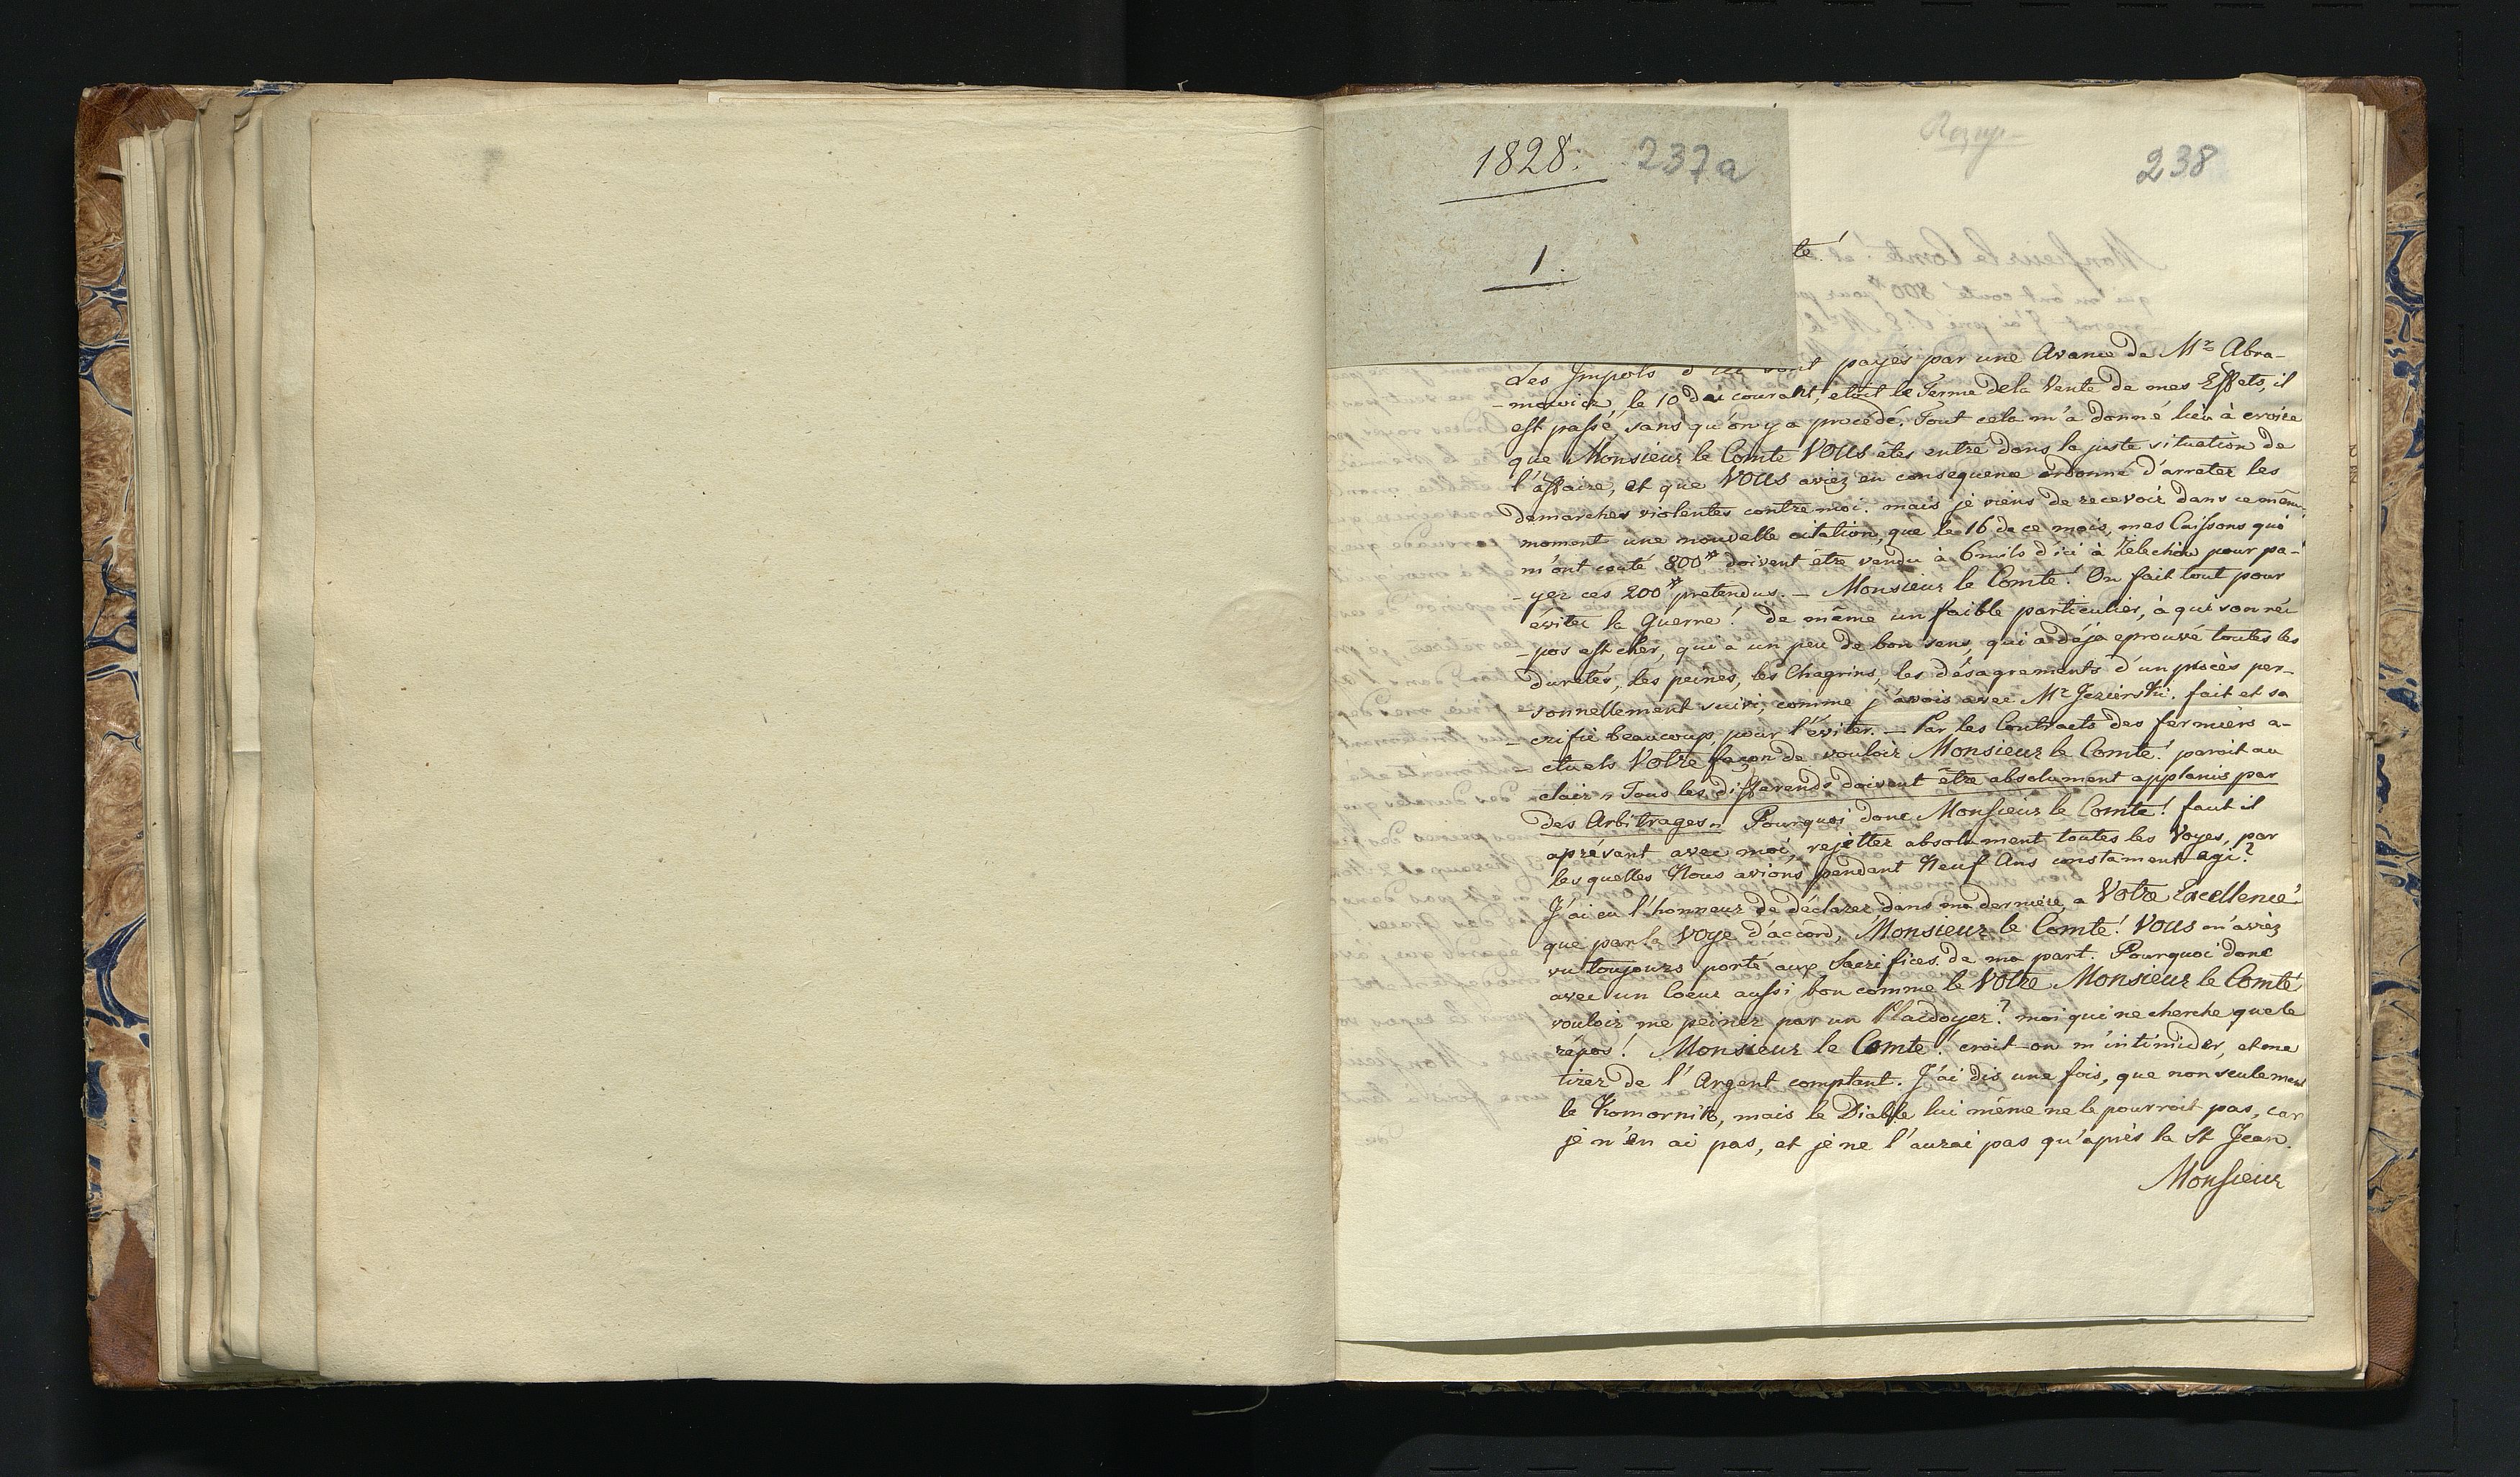 1828: 237a
1.
238
te!
des Impots d'ici sont payés par une Avance de Mr. Abra-
-mowicz, le 10 du courant, étoit le Terme dela Vente de mes Effets, il
est passé, sans qu'on y a procédé. Tout cela m'a donné lieu à croire
que Monsieur le Comte VOUS êtes entré dans la juste situation de
l'affaire, et que VOUS aviez en consequence ordonné d'arreter les
demarches violentes contre moi. mais je viens de recevoir dans ce même
moment une nouvelle citation, que le 16 de ce mois, mes Caissons qui
m'ont couté 800# doivent être vendu à 6 mils d'ici à Zelechów pour pa-
-yer ces 200# pretendus. — Monsieur le Comte! On fait tout pour
éviter la Guerre! de même un faible particulier, à qui son ré-
-pos est cher, qui a un peu de bon sens, qui a déja eprouvé toutes les
duretés, les peines, les Chagrins, les désagrements d'un procès per-
-sonnellement suivi, comme j'avois avec Mr Jezierski. fait et sa
-crifié beaucoup pour l'éviter. — Par les Contracts des fermiers a-
-ctuels Votre façon de vouloir Monsieur le Comte! paroit au
clair „Tous les differends doivent être absolument applanis par
des Arbitrages„ Pourquoi donc Monsieur le Comte! faut il
aprévant avec moi, rejetter absolument toutes les Voyes, par
les quelles Nous avions pendant Neuf Ans constament agi?
J'ai eu l'honneur de déclarer dans ma derniere, a Votre Excellence
que par la voye d'accord, Monsieur le Comte! VOUS m'aviez
vu toujours porté aux Sacrifices de ma part. Pourquoi donc
avec un Coeur aussi bon comme le Votre Monsieur le Comte
vouloir me peiner par un Plaidoyer? moi qui ne cherche que le
répos! Monsieur le Comte! croit-on m'intimider, et me
tirer de l'Argent comptant. J'ai dis une fois, que non seulement
le Komornik, mais le Diable lui même ne le pourroit pas, car
je n'en ai pas, et je ne l'aurai pas qu'après la St Jean.
Monsieur